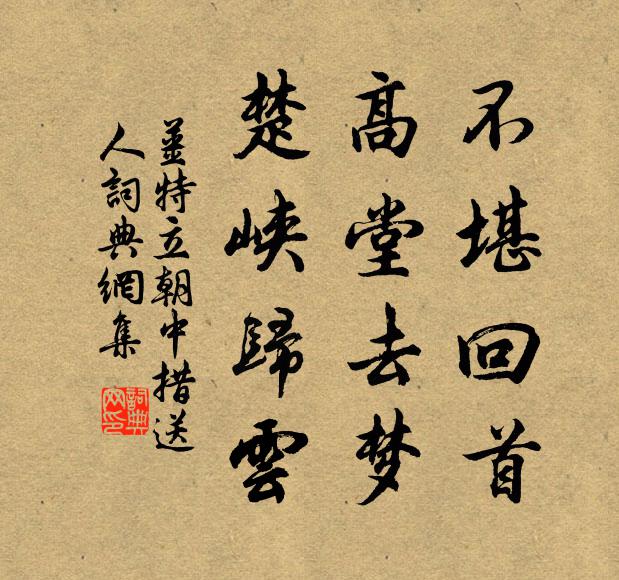 不堪回首
高堂去梦
楚峡歸雲
薑特立朝中措送
人詞典網集
詞典网印